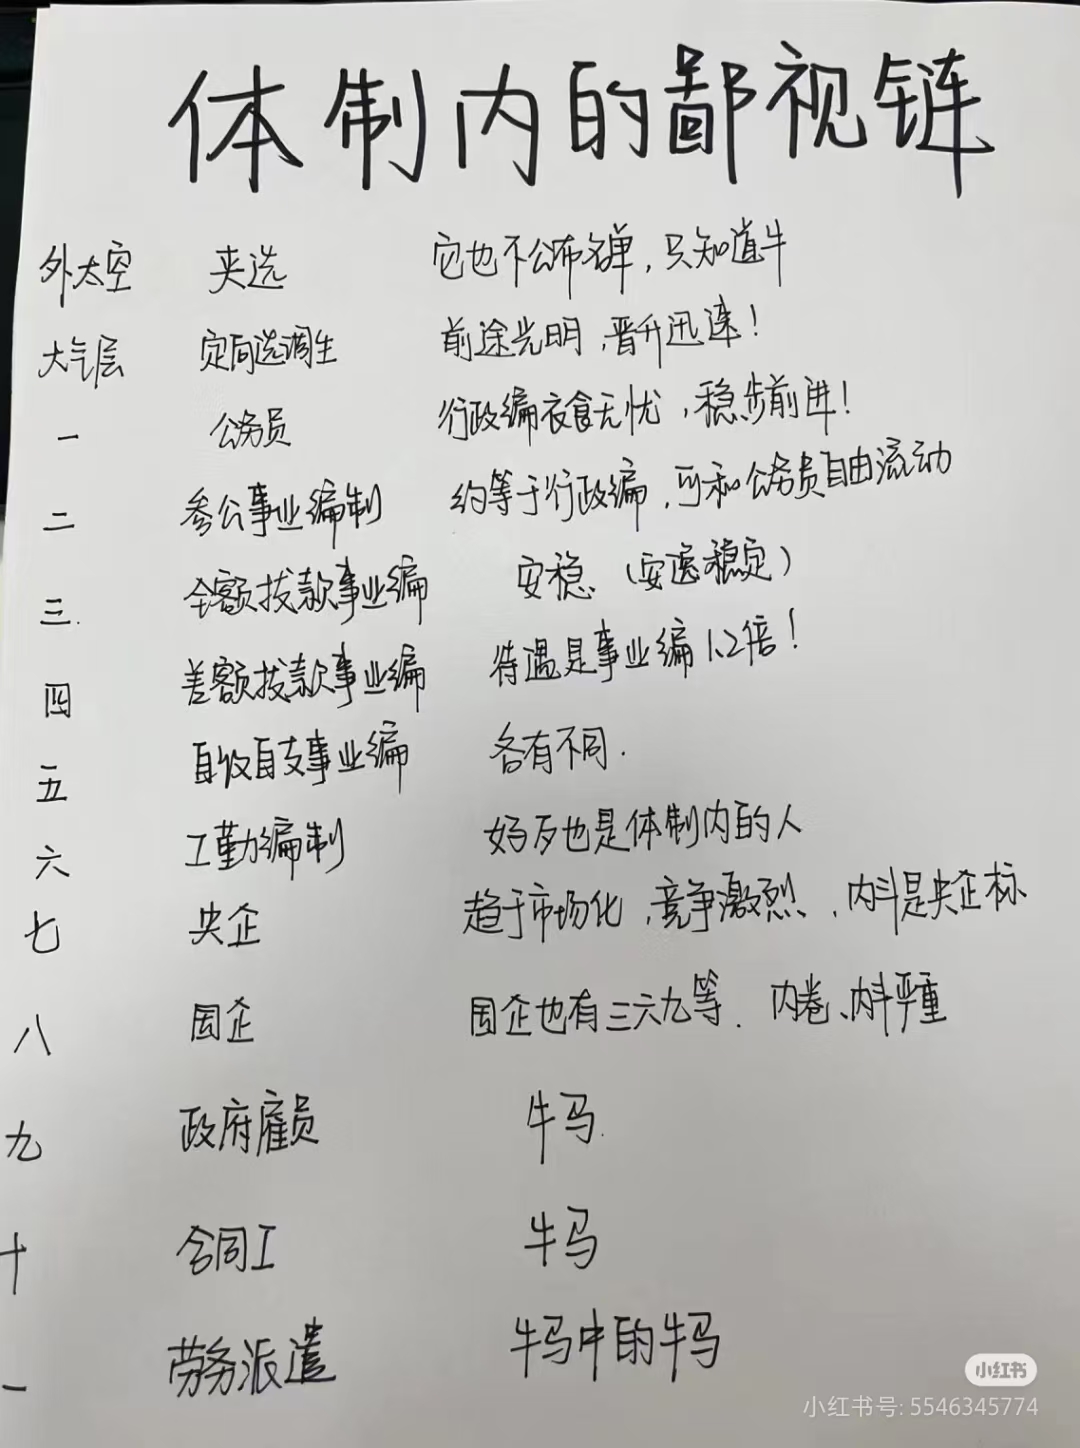 体制内的鄙视链
外太空 夹选 它也不公布名单，只知道牛
大气层 定向选调生 前途光明，晋升迅速！
一 公务员 行政编衣食无忧，稳步前进！
二 参公事业编制 约等于行政编，可和公务员自由流动
三. 全额拨款事业编 安稳（安逸稳定）
四 差额拨款事业编 待遇是事业编1.2倍！
五 自收自支事业编 各有不同.
六 工勤编制 好歹也是体制内的人
七 央企 趋于市场化，竞争激烈，内斗是央企标
八 国企 国企也有三六九等. 内卷、内斗严重
九 政府雇员 牛马.
十 合同工 牛马
一 劳务派遣 牛马中的牛马
小红书
小红书号: 5546345774